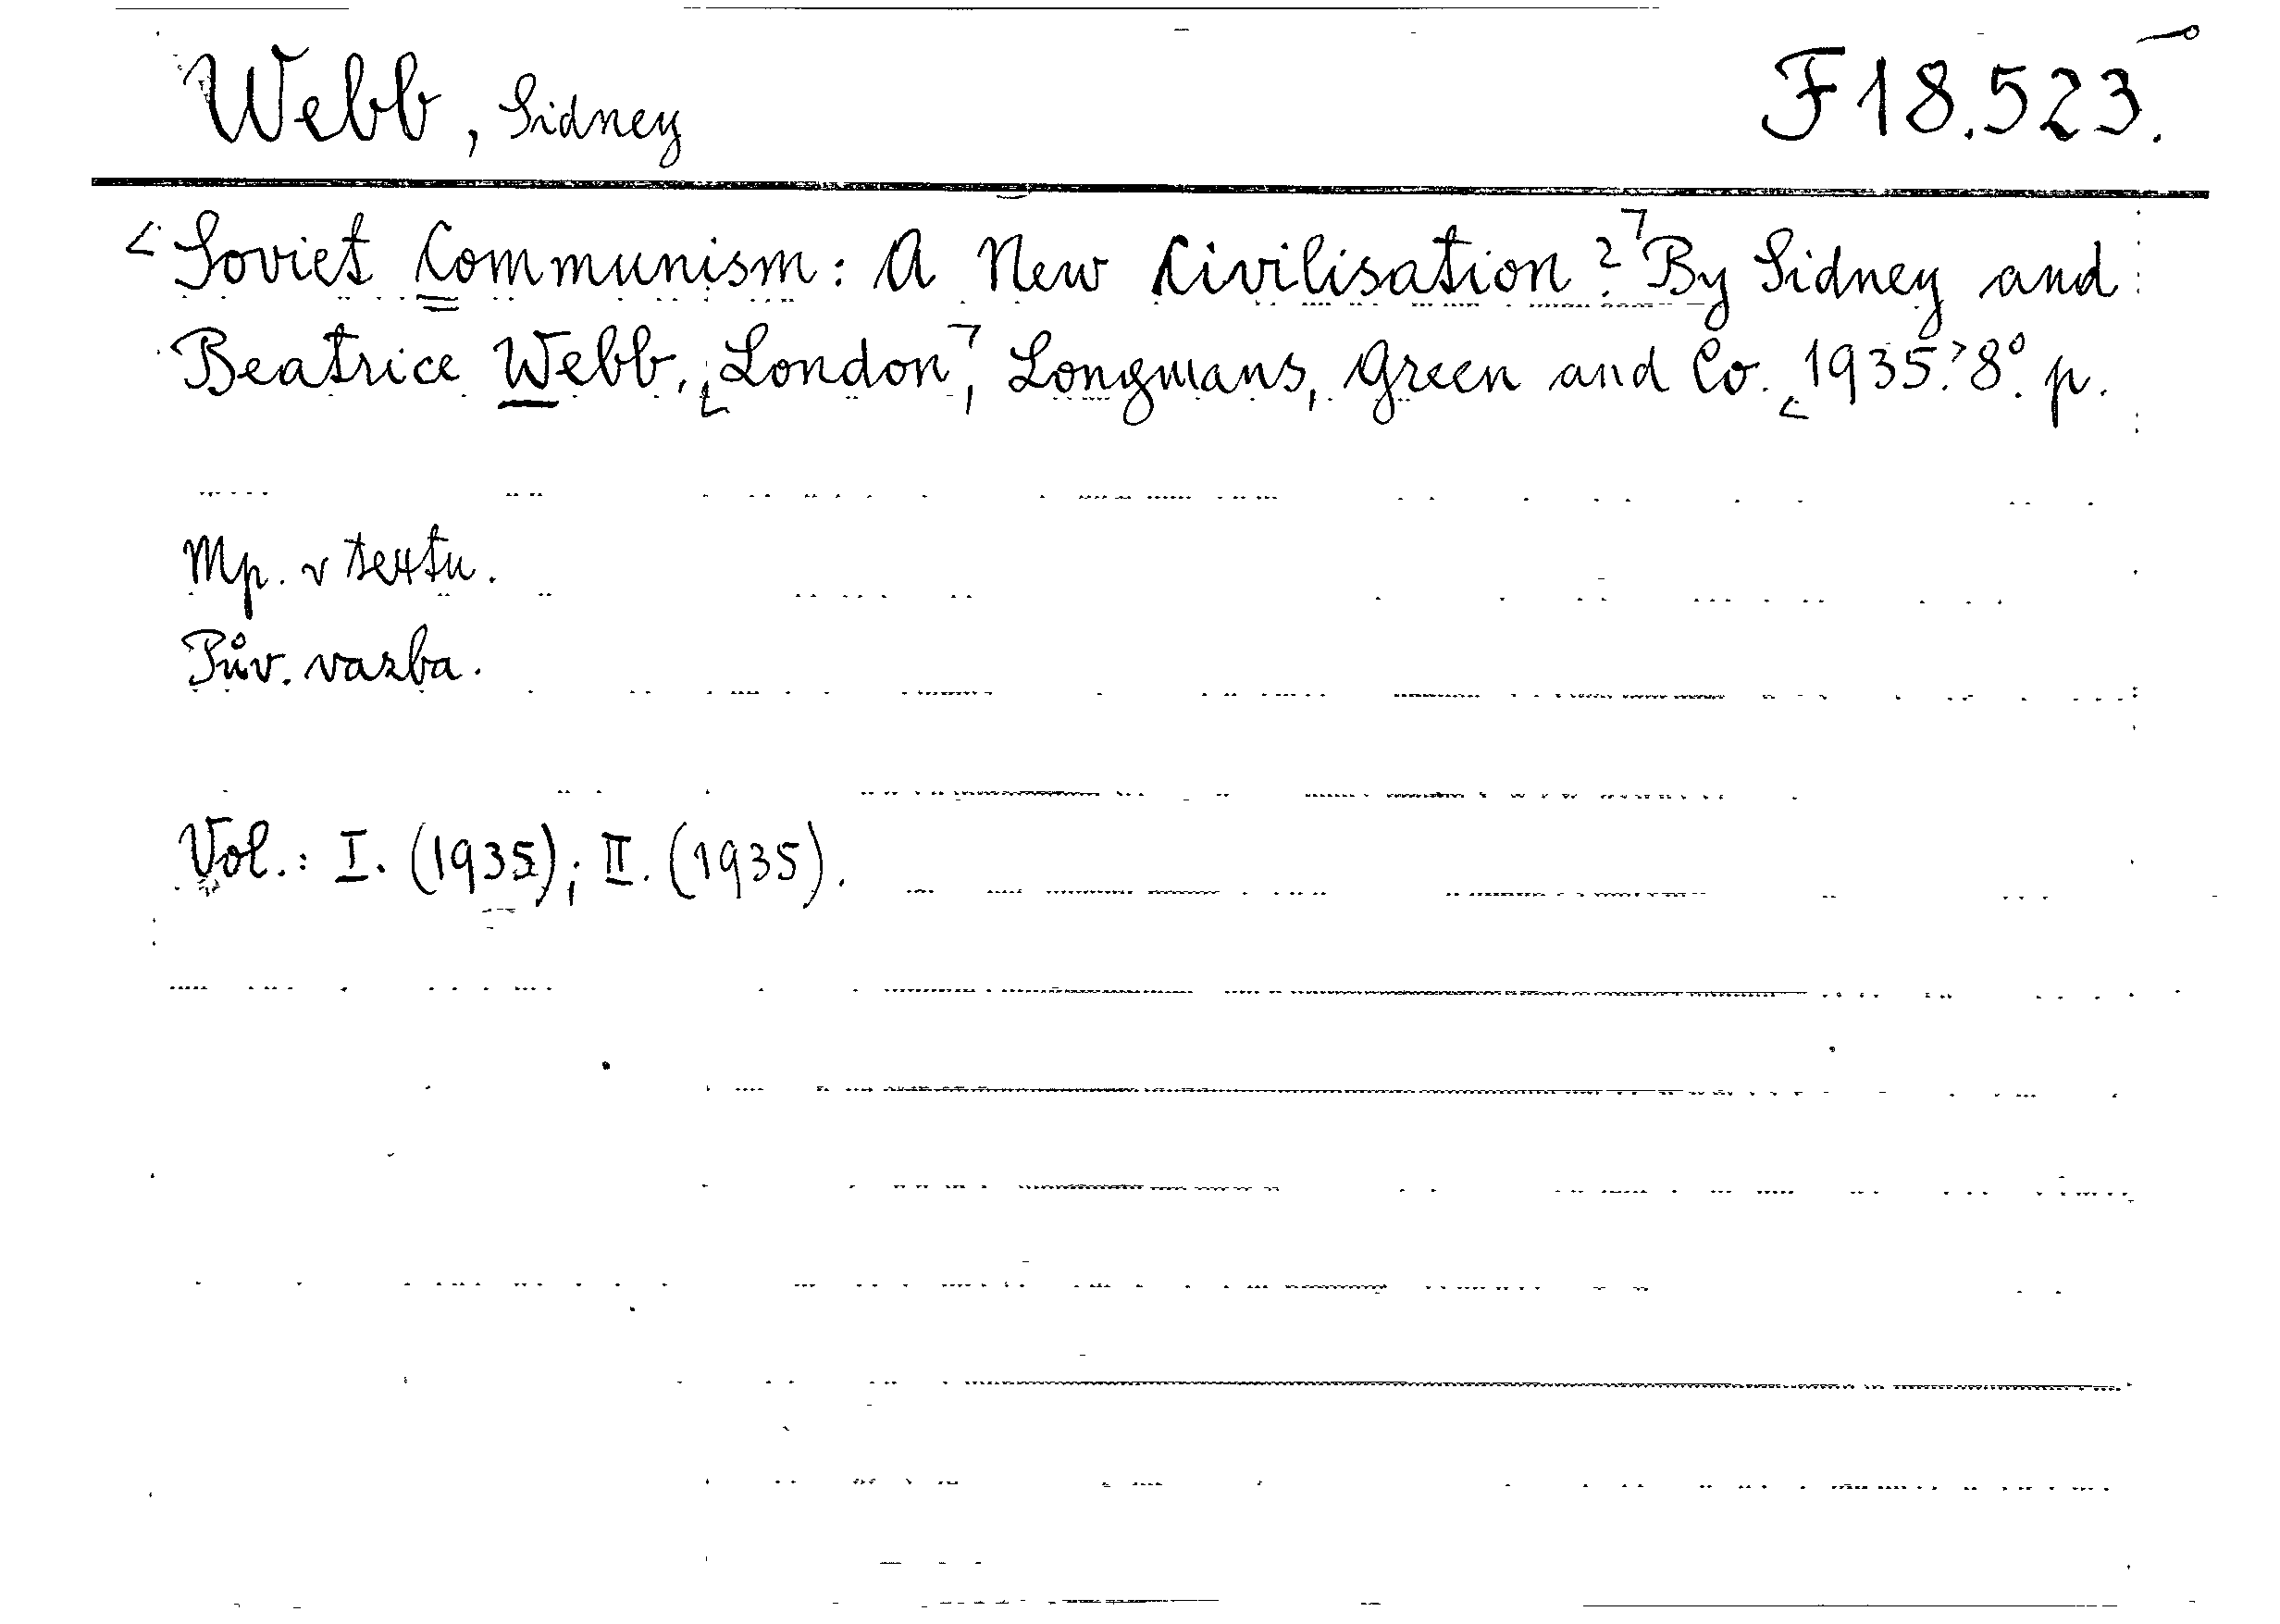 Webb, Sidney F 18.523.
Soviet Communism: A New Civilisation? By Sidney and
Beatrice Webb, London, Longmans, Green and Co. 1935. 8°. p.
Mp. v textu.
Pův. vazba.
Vol.: I. (1935); II. (1935).